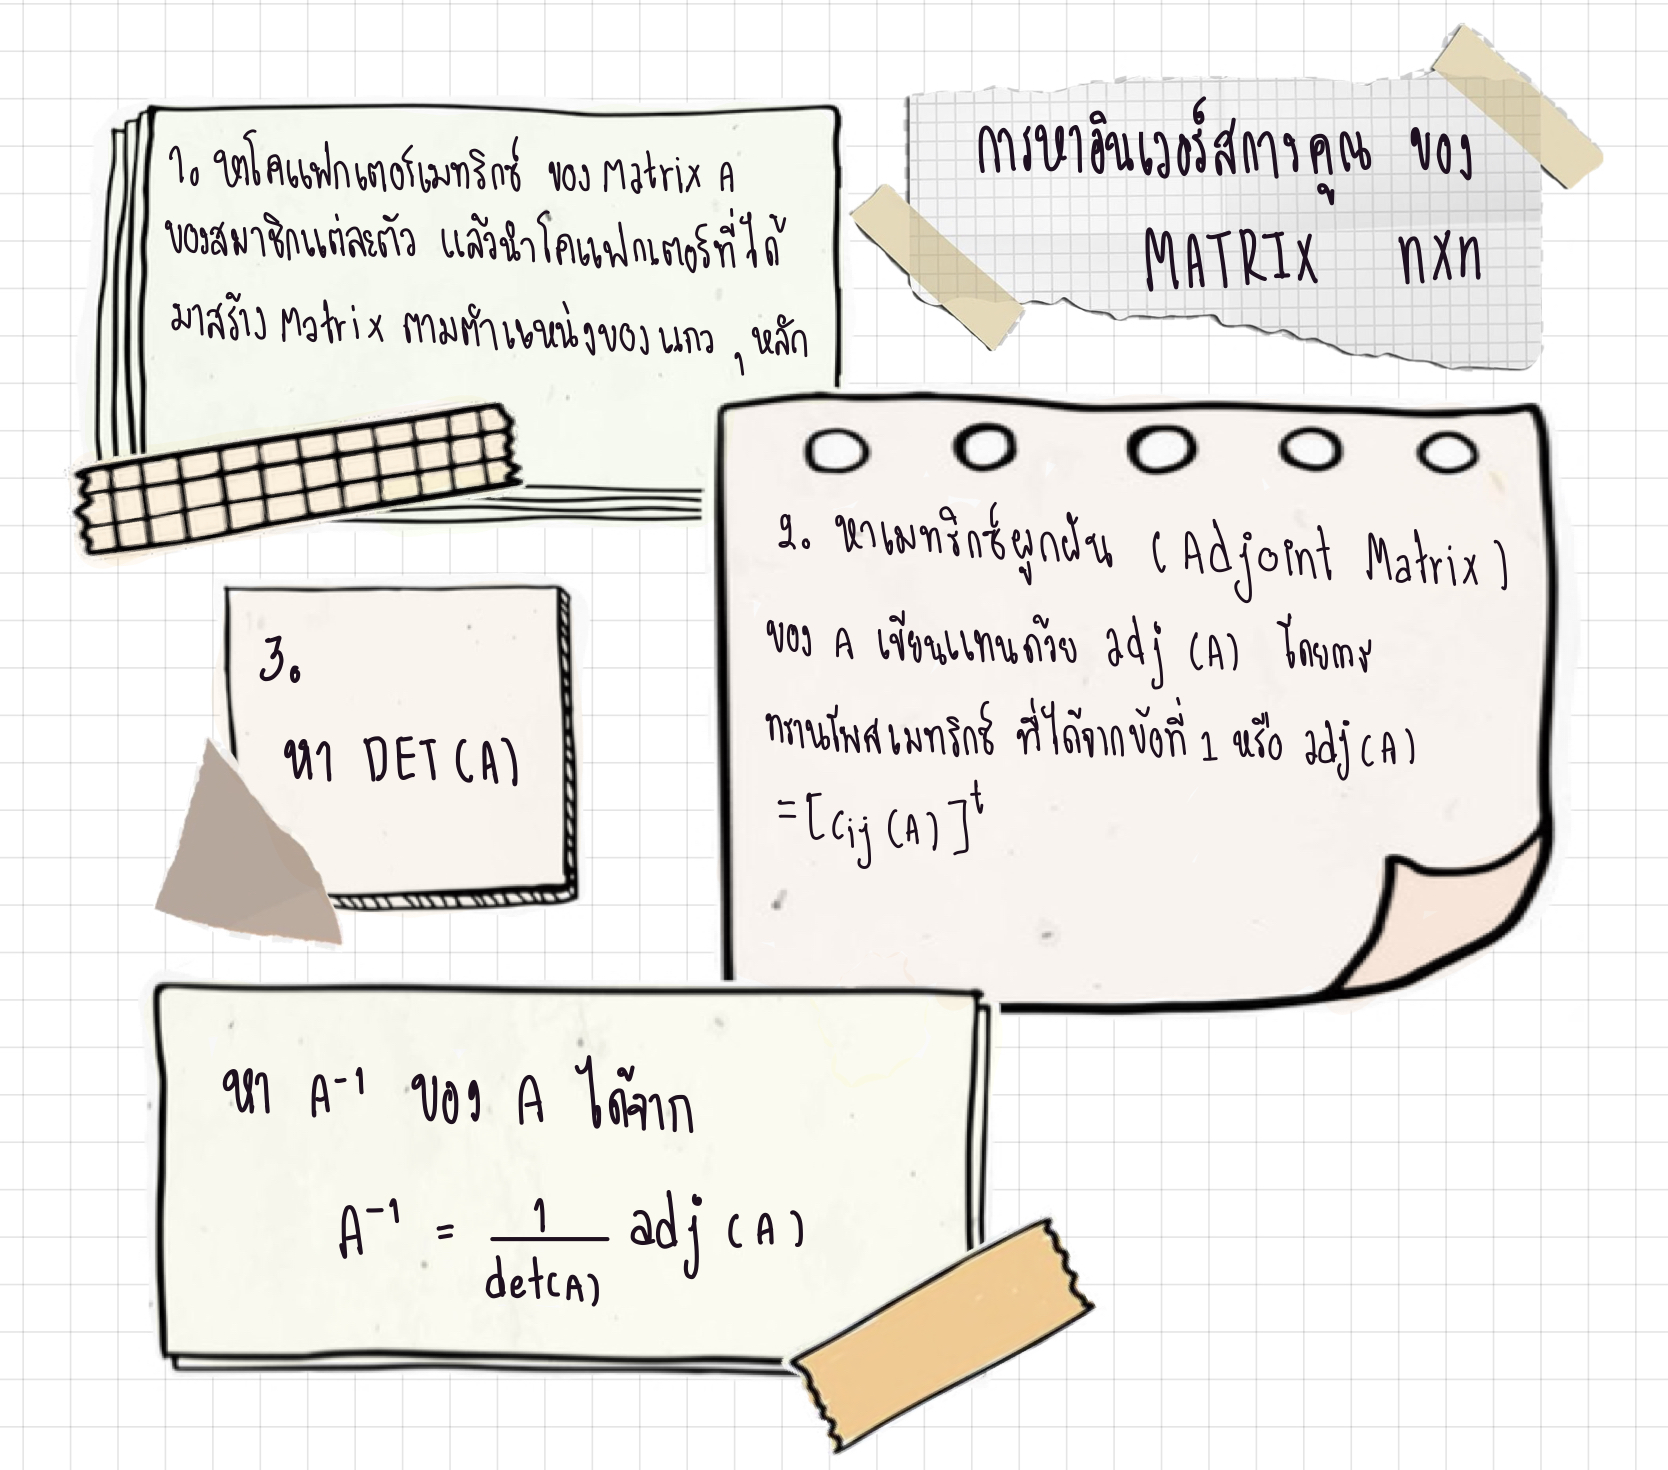 การหาอินเวอร์สการคูณ ของ
MATRIX nxn
1. หาโคแฟกเตอร์เมทริกซ์ ของ Matrix A
ของสมาชิกแต่ละตัว แล้วนำโคแฟกเตอร์ที่ได้
มาสร้าง Matrix ตามตำแหน่งของแถว , หลัก
2. หาเมทริกซ์ผูกผัน (Adjoint Matrix)
ของ A เขียนแทนด้วย adj (A) โดยการ
ทรานโพสเมทริกซ์ ที่ได้จากข้อที่ 1 หรือ adj(A)
= [Cij (A)]ᵗ
3.
หา DET(A)
หา A⁻¹ ของ A ได้จาก
A⁻¹ = 1/det(A) adj (A)